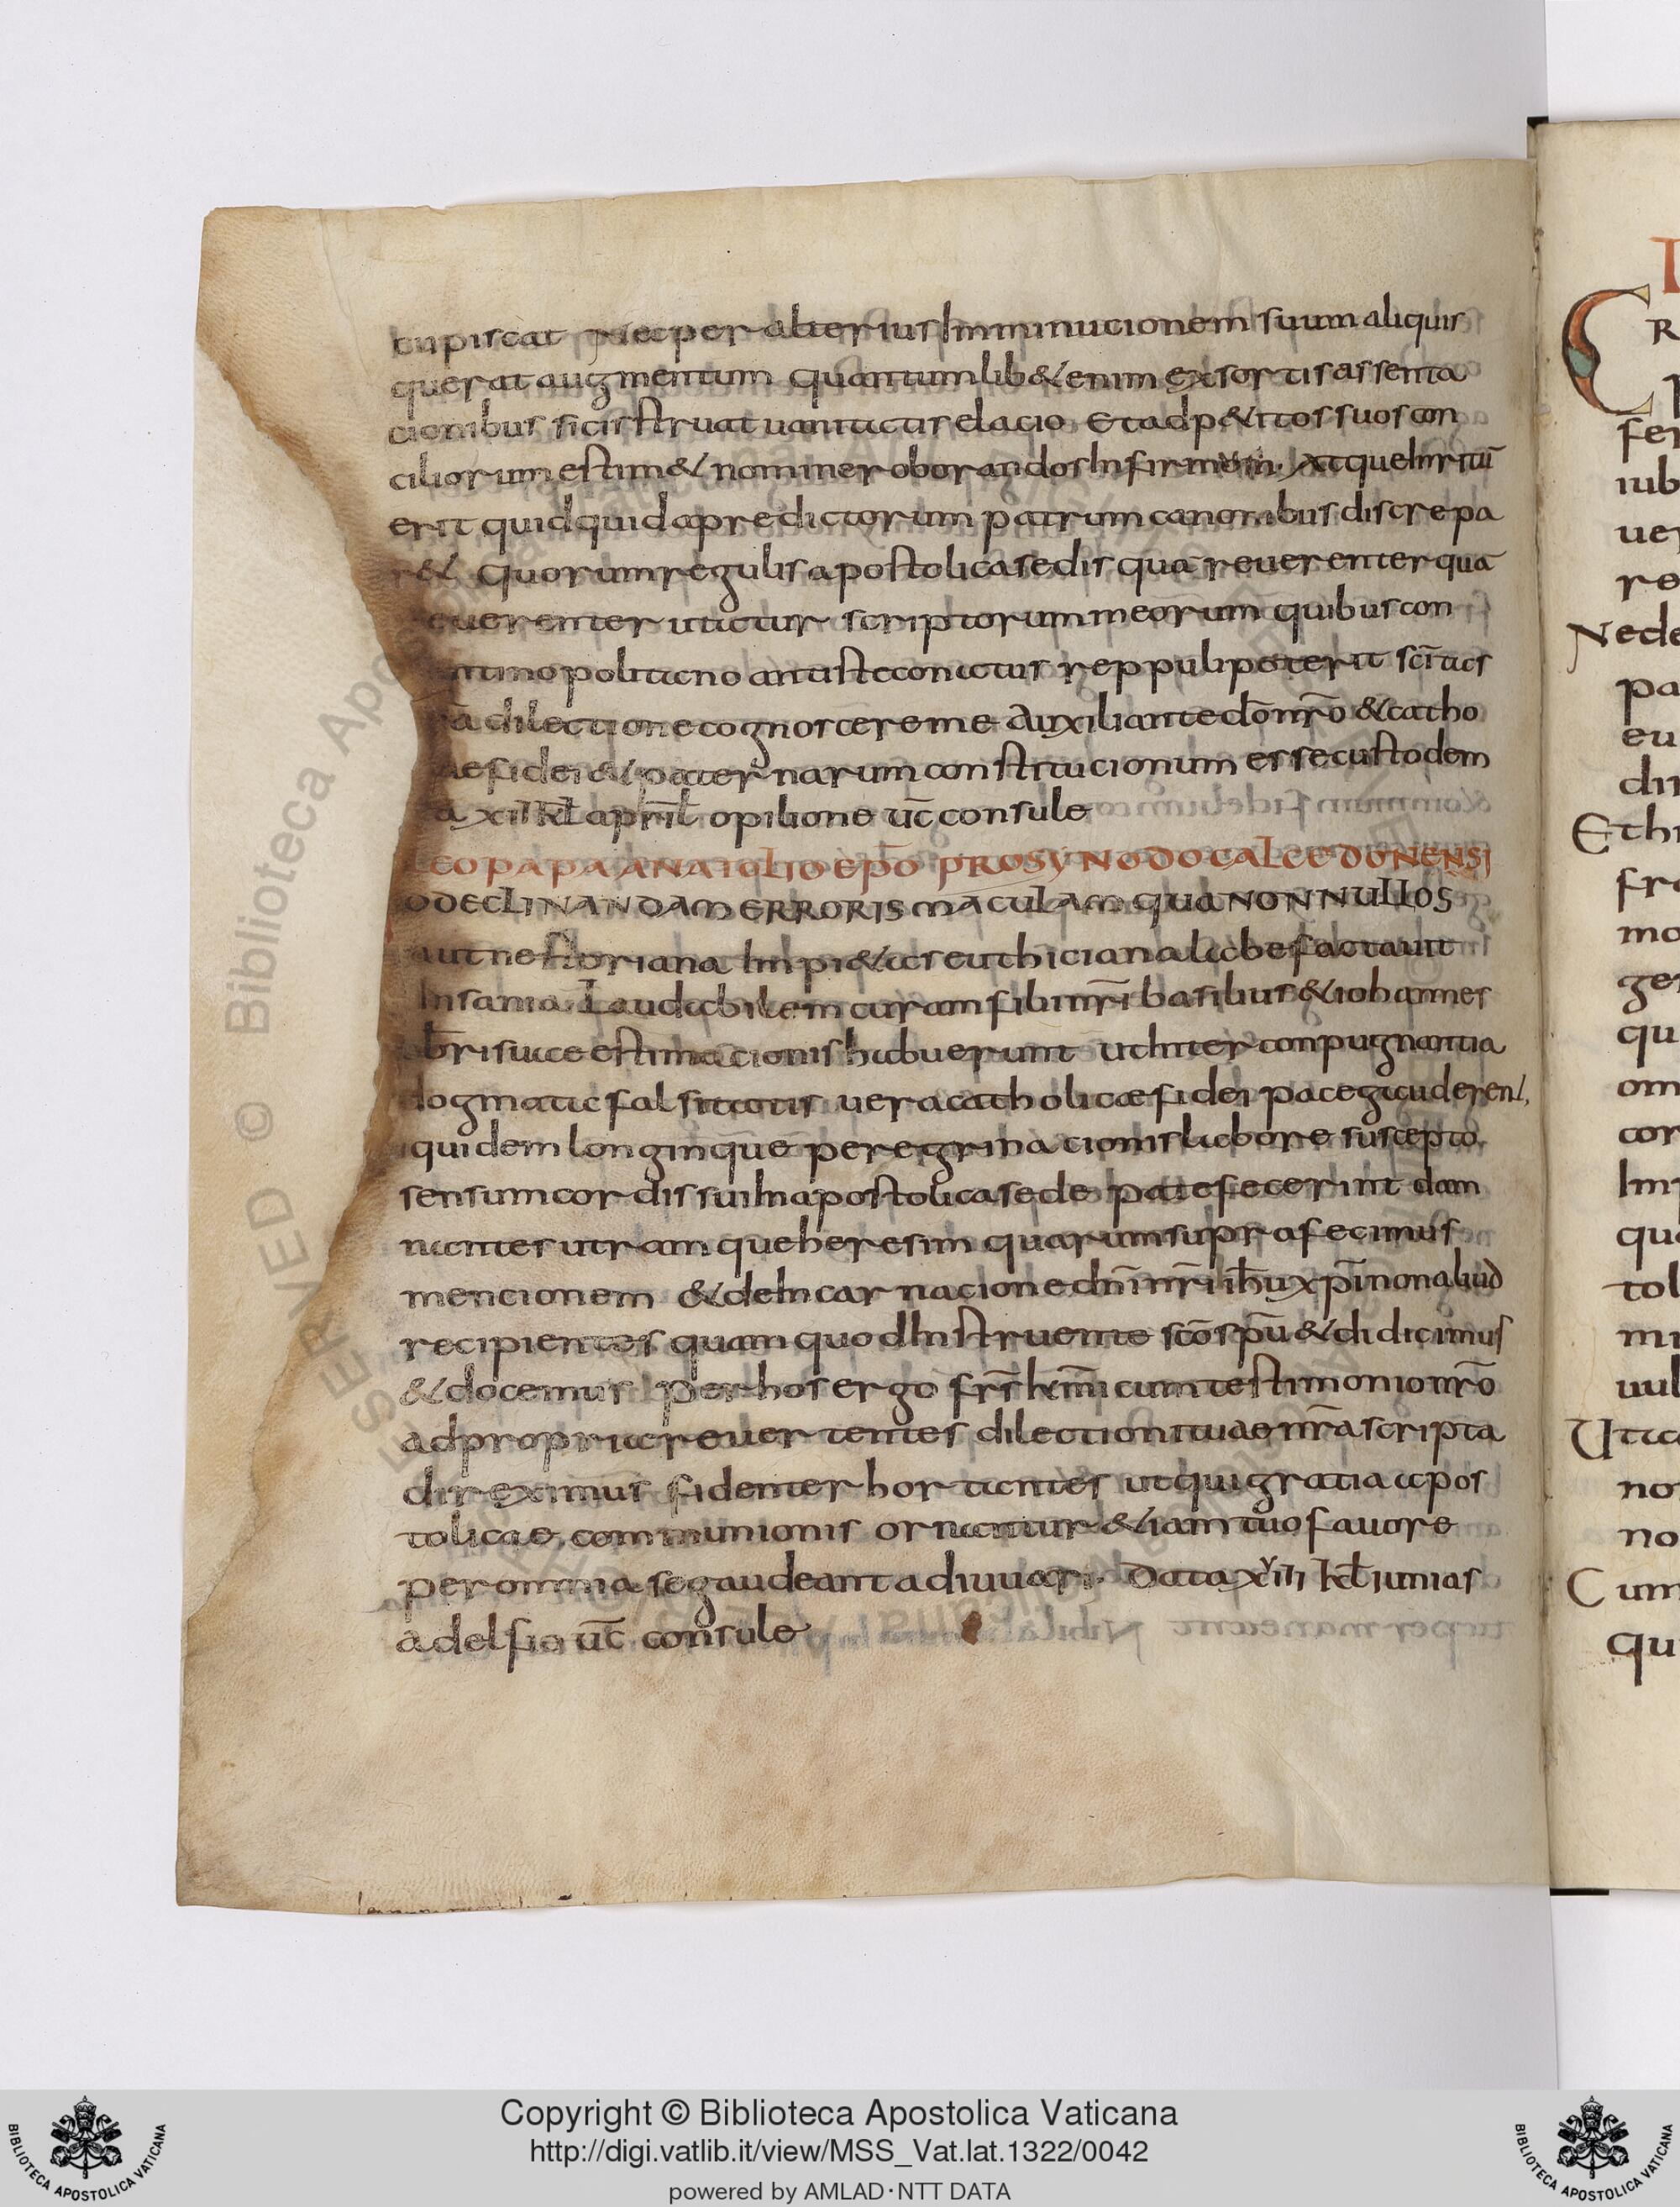 cupiscat Nec per alterius Imminucionem suum aliquis
querat augmentum quantum lib& enim exsortis assenta
cionibus sicistruat uanitatis elacio Et adp&itos suos con
ciliorum estim& nomine roborandos Infirmum. Atque Inritū
erit quidquid apredictorum patrum canonibus discrepa
r& Quorum regulis apostolica sedis quā reuerenter quā
euerenter utatur scriptorum meorum quibus con
ntinopolitano antiste conatus reppuli poterit scī tatis
rā dilectione cognoscere me Auxiliante dō nrō & catho
ae fidei & pater narum constitucionum esse custodem
a xii kł aprił opilione ūc consule
LEO PAPA ANATOLIO EPŌ PRO SYNODO CALCEDONENSI
O DECLINANDAM ERRORIS MACULAM QUA NON NULLOS
aut nestoriana Impi&as eut hiciana labe factauit
Insania Laudabilem curam sibi nrī basilius & iohannes
brī suae estimacionis habuerunt ut Inter conpugnantia
dogmate falsitatis uera catholicæ fidei pace gauderent,
iquidem longinque peregrinacionis labore suscepto
sensum cordis sui In apostolica sede patefecerint dam
nantes utramque heresim quarum supra fecimus
mencionem & deIncarnacione dnī nrī ihū xpī non aliud
recipientes quam quod Instruente scō spū & didicimus
& docemus Per hos ergo frs kmī cum testimonio nrō
ad propria reuertentes dilectioni tuae nrā scripta
direximus fidenter hortantes ut qui gratia apos
tolicae communionis ornantur & iam tuo fauore
per omnia se gaudeant adiuuari. Data xiii kł iunias
adelfio ūc consule
C
R
P
fer
iub
uer
re
Nede
pa
eu
dir
Ethi
fra
mo
ger
qu
om
cor
Imp
qua
tol
mi
uul
Uta
nos
no
Cum
qu
© Biblioteca Apostolica Vaticana
Copyright © Biblioteca Apostolica Vaticana
http://digi.vatlib.it/view/MSS_Vat.lat.1322/0042
powered by AMLAD·NTT DATA
BIBLIOTECA APOSTOLICA VATICANA
BIBLIOTECA APOSTOLICA VATICANA